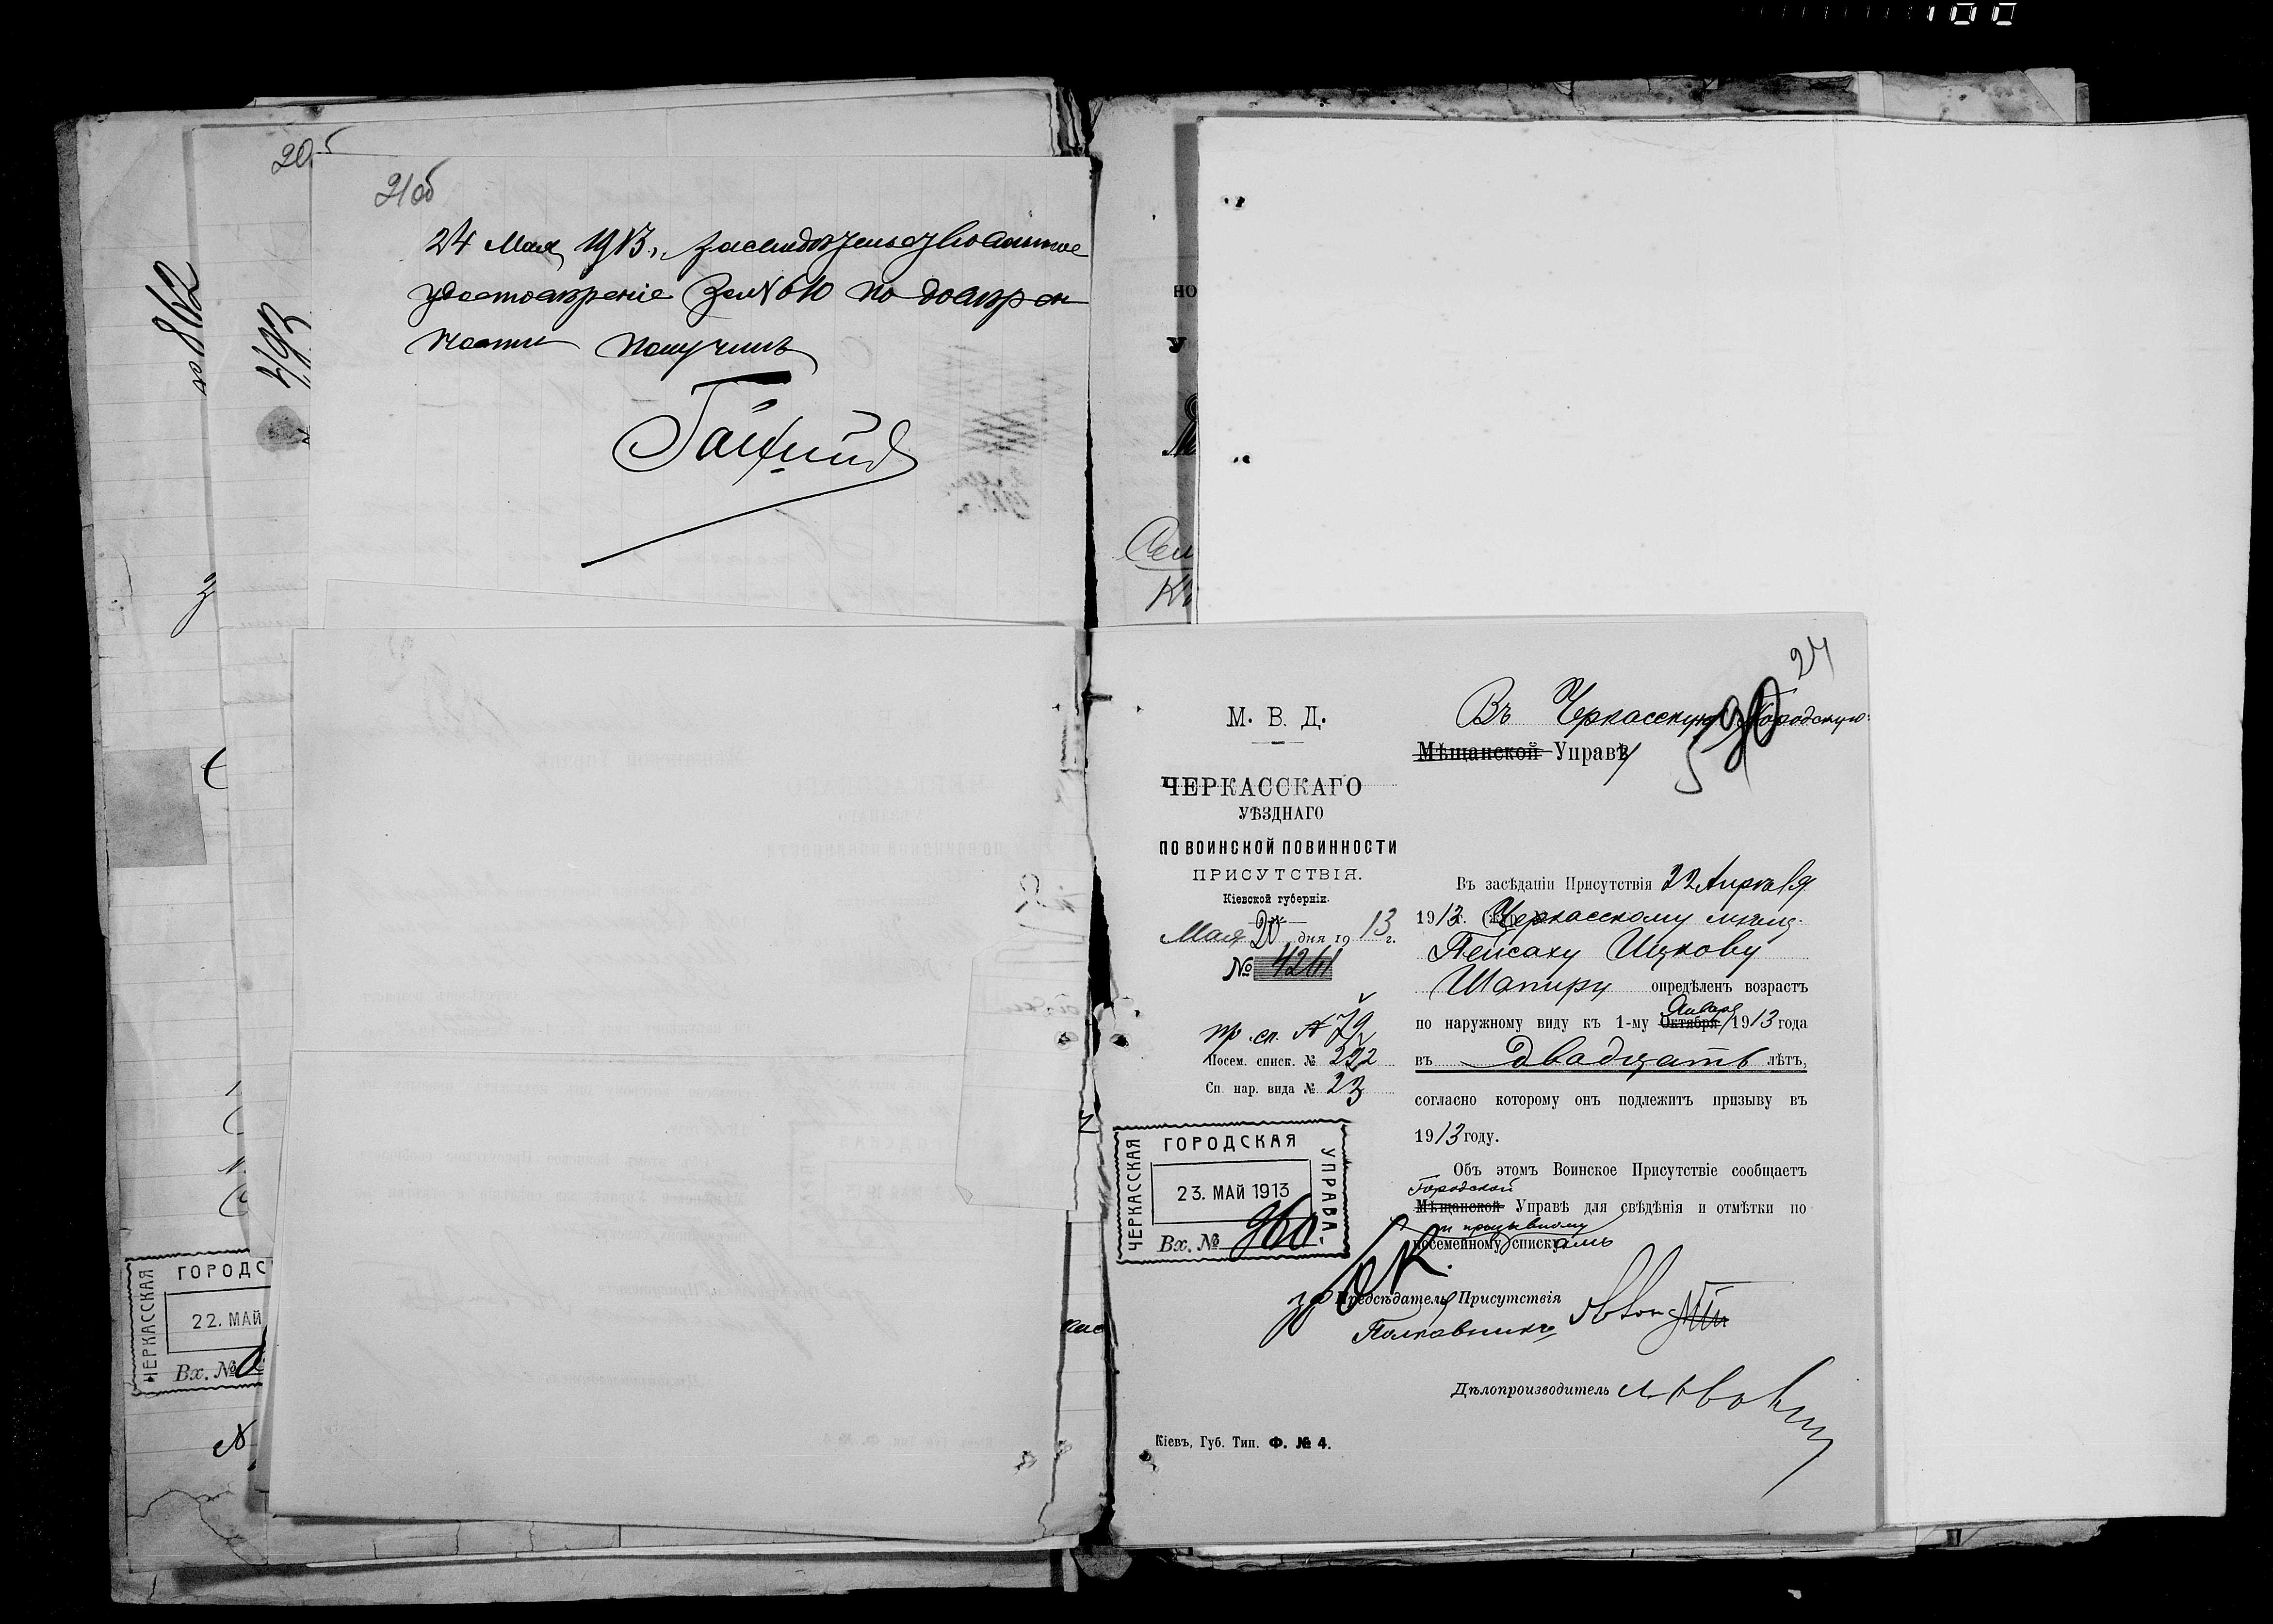 100
20б
21об
24 Мая 1913 г. засвидѣтельствованное
удостовѣреніе за № 610 по довѣрен
ности получилъ
№ 862
493
ГОРОДС
ЧЕРКАССКАЯ
22. МАЙ
Вх. №
24
М. В. Д.
ЧЕРКАССКАГО
УѢЗДНАГО
ПО ВОИНСКОЙ ПОВИННОСТИ
ПРИСУТСТВІЯ.
Кіевской губерніи.
Мая 20 дня 1913 г.
№ 4261
пр. сп. № 79
Посем. списк. № 222
Сп. нар. вида № 23
ЧЕРКАССКАЯ ГОРОДСКАЯ УПРАВА.
23. МАЙ 1913
Вх. № 960
Въ Черкасскую Городскую
Мѣщанской Управѣ
Въ засѣданіи Присутствія 22 Апрѣля
1913 г. Черкасскому мѣщ.
Пейсаху Ицкову
Шапиру опредѣленъ возрастъ
Января
по наружному виду къ 1-му Октября 1913 года
въ двадцать лѣтъ,
согласно которому онъ подлежитъ призыву въ
1913 году.
Объ этомъ Воинское Присутствіе сообщаетъ
Городской
Мѣщанской Управѣ для свѣдѣнія и отмѣтки по
и призывному
посемейному спискамъ
Предсѣдатель Присутствія
Полковникъ
Дѣлопроизводитель
Кіевъ, Губ. Тип. Ф. № 4.